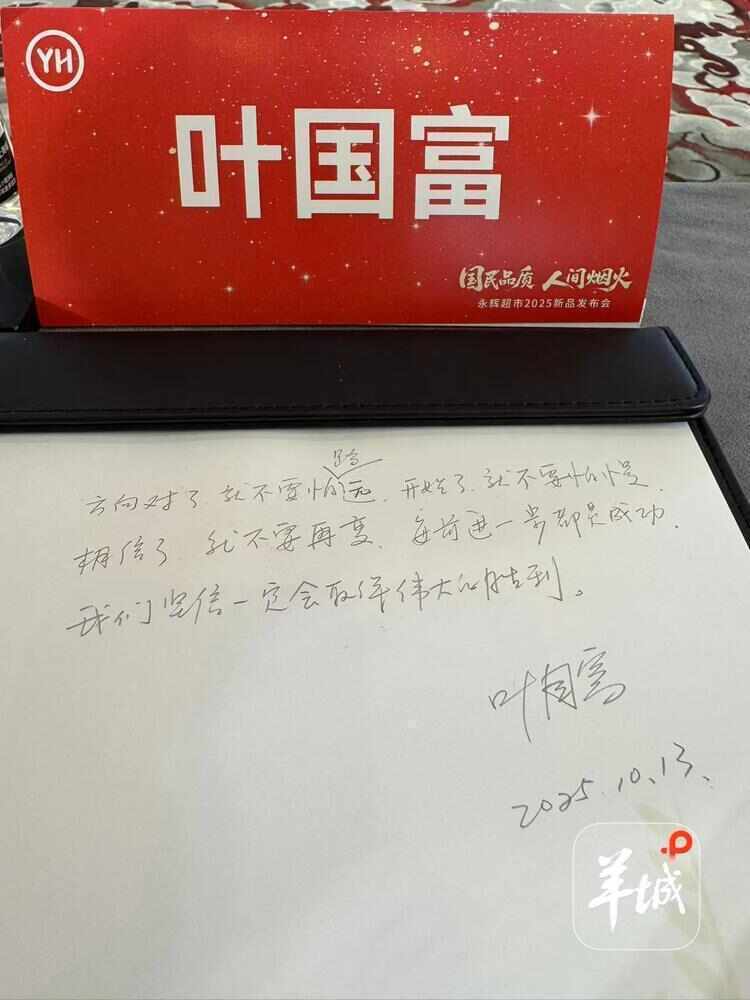 YH
叶国富
国民品质 人间烟火
永辉超市2025新品发布会
路
方向对了.就不要怕远.开始了.就不要怕慢.
相信了.就不要再变.每前进一步都是成功.
我们坚信一定会取得伟大的胜利。
叶国富
2025.10.13.
羊城